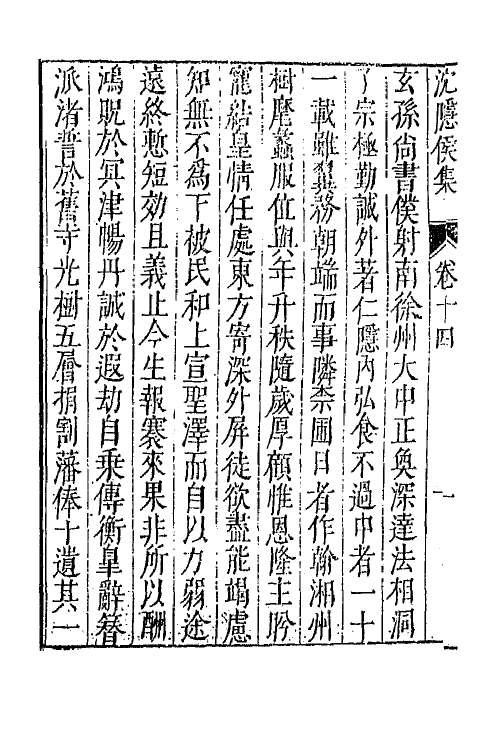 沈隱侯集 卷十四 一
玄孫尚書僕射南徐州大中正奐深達法相洞
了宗極勤誠外著仁隱內弘食不過中者一十
一載雖翼務朝端而事隣柰圃日者作翰湘州
樹麾蠡服位與年升秩隨歲厚顧惟恩隆主盼
寵結皇情任處東方寄深外屏徒欲盡能竭慮
知無不爲下被民和上宣聖澤而自以力弱途
遠終慙短効且義止今生報褰來果非所以酬
鴻貺於冥津暢丹誠於遐劫自乘傳衡臯辭簪
派渚誓於舊寺光樹五層捐割藩俸十遺其一